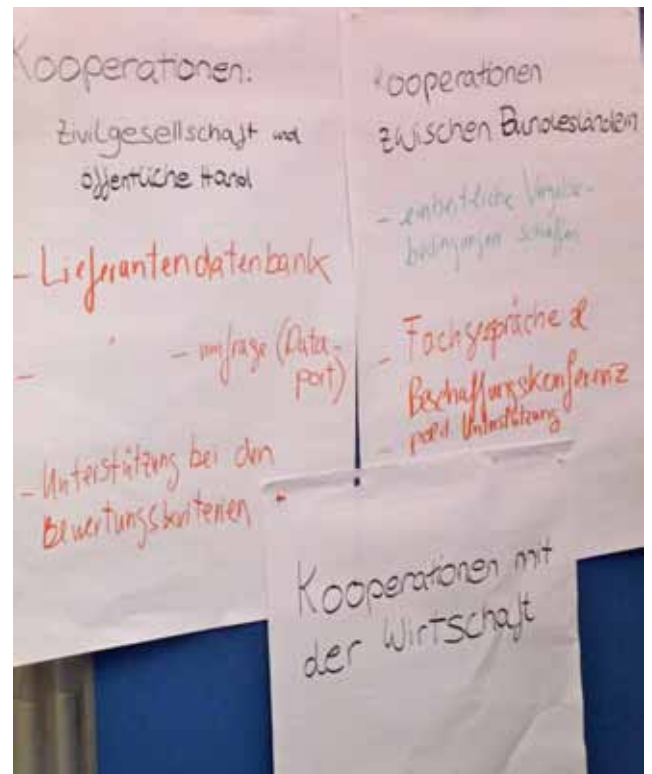 Kooperationen:
Zivilgesellschaft und
öffentliche Hand
- Lieferantendatenbank
- " - umfrage (Data-
port)
- Unterstützung bei den
Bewertungskriterien
Kooperationen
zwischen Bundesländern
- einheitliche Vergabe-
bedingungen schaffen
- Fachgespräche &
Beschaffungskonferenz
- polit. Unterstützung
Kooperationen mit
der Wirtschaft